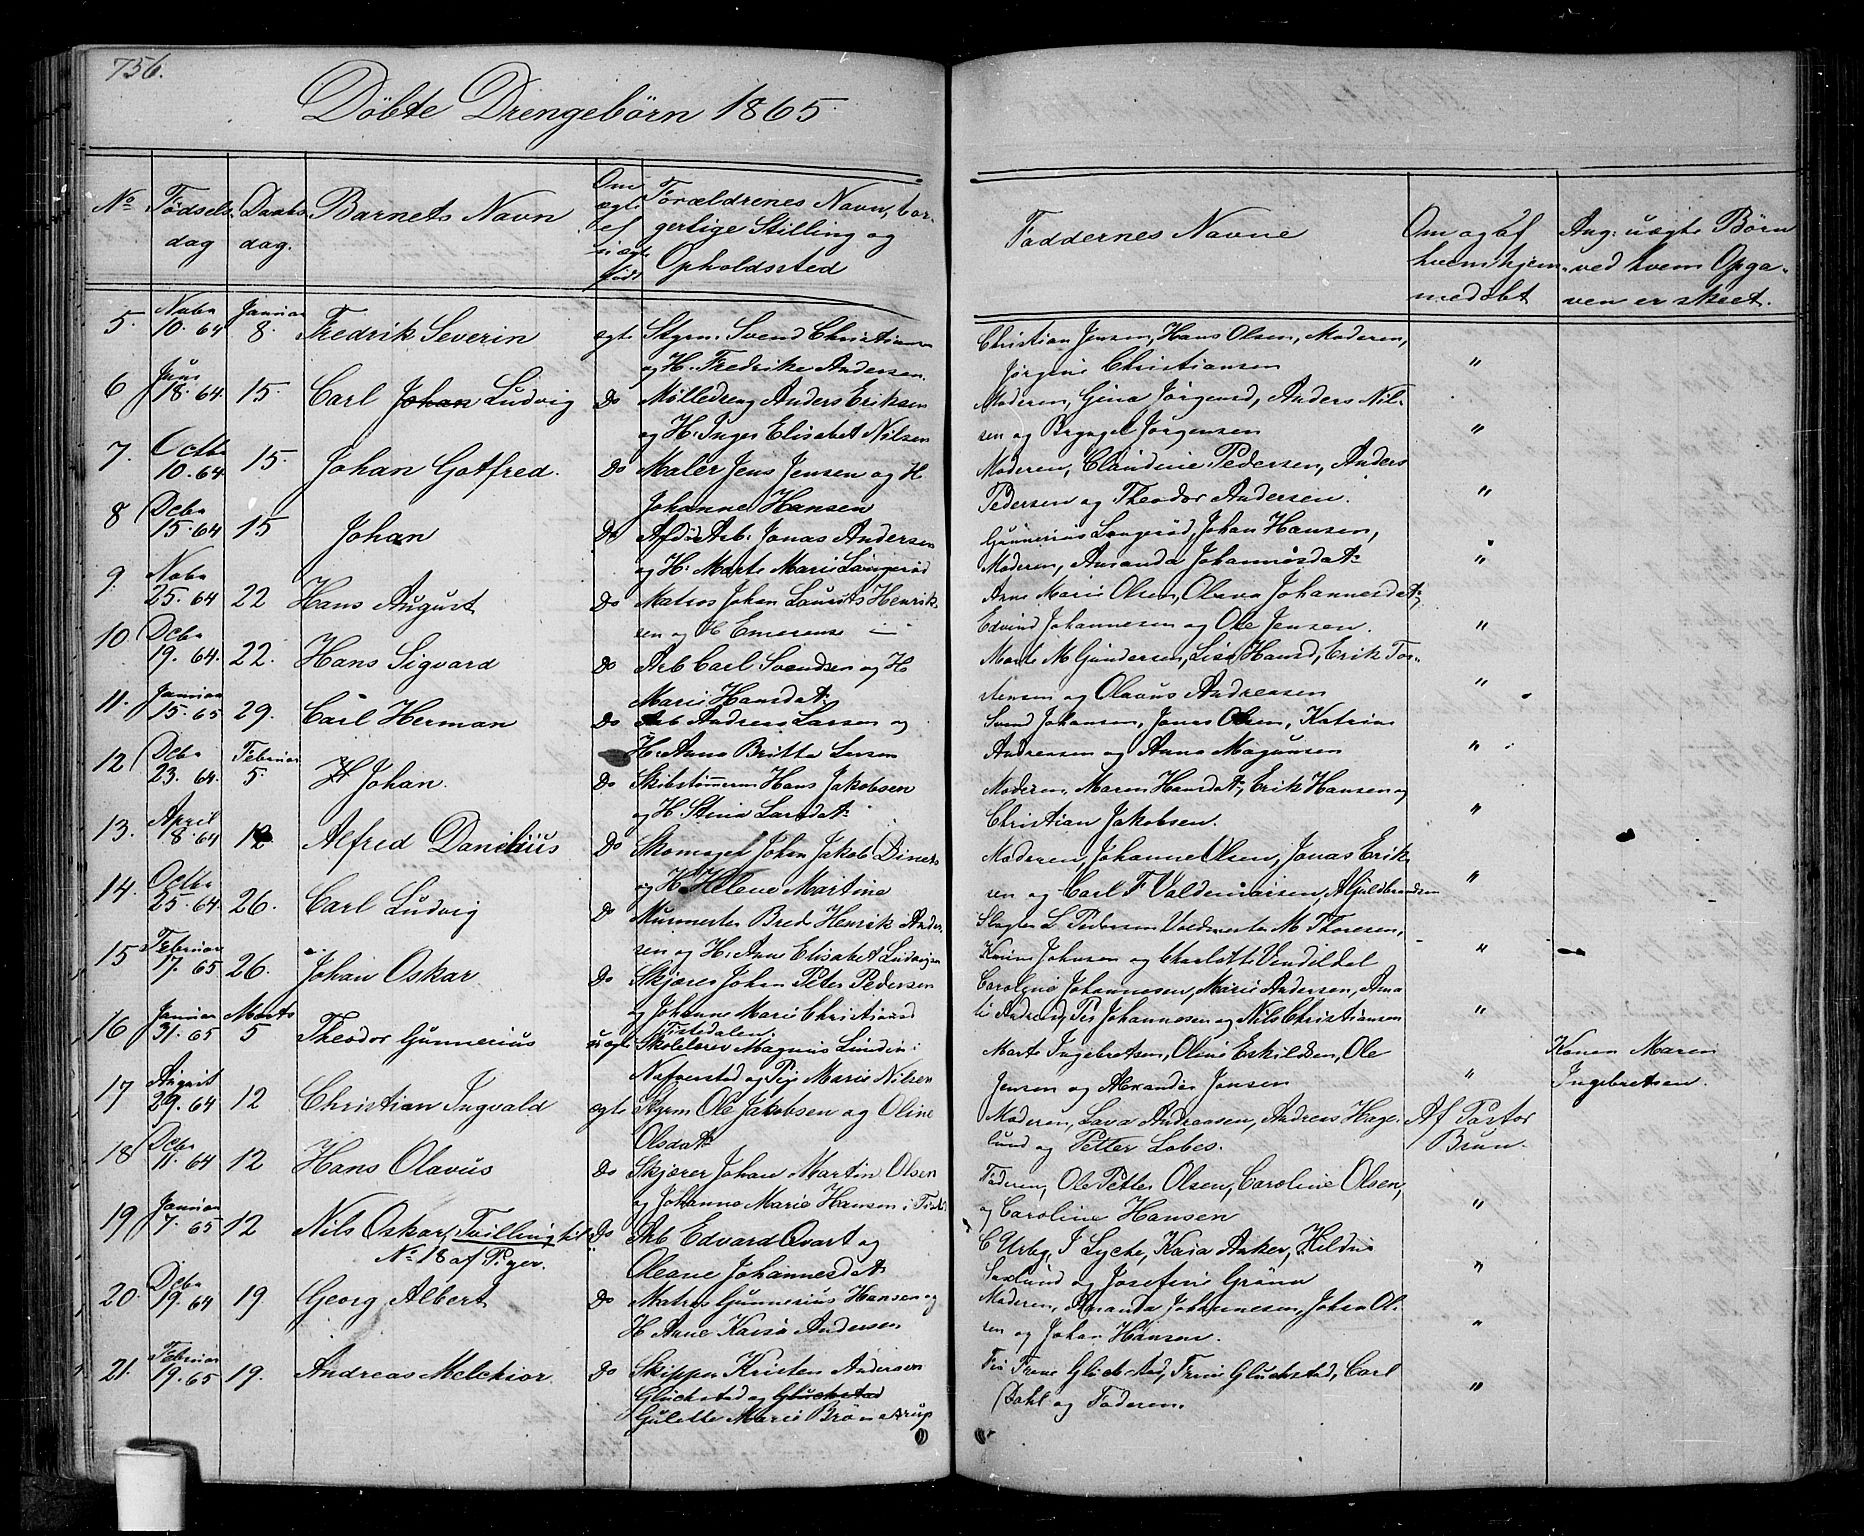 756.
Döbte Drengebørn 1865
No Fødsels dag Daabs dag. Barnets Navn Om ægte el. uægte født Forældrenes Navn, borgerlige Stilling og Opholdssted Faddernes Navne Om og af hvem hjemmedøbt Ang: uægte Børn ved hvem Opgaven er skeet.
5. Novbr 10. 64 Januar 8. Fredrik Severin ægte Styrm. Svend Christiansen Christian Jensen, Hans Olsen, Moderen,
og H. Fredrike Andersen. Jørgine Christiansen "
6 Juni 18. 64 15. Carl Johan Ludvig Do Mølledreng Anders Eriksen Moderen, Gina Jørgensd, Anders Nil-
og H. Inger Elisabet Nilsen sen og Jørgensen "
7. Octbr 10. 64 15. Johan Gotfred. Do Maler Jens Jensen og H. Moderen, Claudine Pedersen, Anders
Johanne Hansen Pedersen og Theodor Andersen. "
8 Dcbr 15. 64 15 Johan Do Afdøde Arb. Jonas Andersen Gunnerius Langerød, Johan Hansen,
og H. Marte Marie Langerød Moderen, Amanda Johannesdatr "
9. Novbr 25. 64 22 Hans August Do Matros Johan Laurits Henrik- Anne Marie Olsen, Olava Johannesdatr,
sen og H Emerense Edvind Johannesen og Ole Jensen. "
10 Dcbr 19. 64. 22. Hans Sigvard Do Arb Carl Svendsen og H Marte M Gundersen, Lise Hansd, Erik Tor-
Marie Hansdatr stensen og Olavus Andreasen "
11. Januar 15. 65 29. Carl Herman Do Arb Andreas Larsen og Svend Johansen, Jonas Olsen, Katrine
H. Anna Britta Larsen Andreasen og Anna Magnusen "
12 Dcbr 23. 64. Februar 5. Johan. Do Skibstømerm Hans Jakobsen Moderen, Maren Hansdatr, Erik Hansen og
og H Stina Larsdatr Christian Jakobsen. "
13. April 18. 64 12 Alfred Danielius Do Skomager Johan Jakob Binets Moderen, Johanne Olsen, Jonas Erik-
og H. Helene Martine sen og Carl F. Valdemarsen, A Guldbrandsen "
14. Octbr 25. 64. 26. Carl Ludvig Do Murmester Bred Henrik Ander- Slagter L Pedersen M Thoresen,
sen og H. Anne Elisabet Ludvigsen Karine Johnsen og Charlotte Vendildal "
15 Februar 17. 65 26. Johan Oskar Do Skjærer Johan Peter Pedersen Caroline Johannesen, Marie Andersen, Ama
og Johanne Marie Christiansd Tistedalen. li Andersd, Per Johannesen og Nils Christiansen "
16 Januar 31. 65 Marts 5 Theodor Gunnerius uægte Skolelærer Magnus Lunden i Marte Ingebretsen, Oline Eskildsen, Ole Konen Maren
Nafverstad og Pige Marie Nilsen Jensen og Alexander Jensen " Ingebretsen.
17 August 29. 64 12 Christian Ingvald ægte Styrm Ole Jakobsen og Oline Moderen, Lava Andreasen, Andreas Hage- Af Pastor
Olsdatr lund og Petter Lobes. Brun.
18 Dcbr 11. 64 12 Hans Olavus Do Skjærer Johan Martin Olsen Faderen, Ole Petter Olsen, Caroline Olsen,
og Johanne Marie Hansen i Tisted. og Caroline Hansen "
19 Januar 7. 65 12 Nils Oskar, Tvilling til Do Arb Edvard Qvart og C Urby, I Lyche, Kaia Anker, Hilda
No. 18 af Piger. Oleane Johannesdatr og Josefine Gröna "
20. Dcbr 19. 64 19 Georg Albert Do Matros Gunnerius Hansen og Moderen, Amanda Johannesen, Johan Ol-
H Anne Kaisa Andersen sen og Johan Hansen. "
21. Februar 19. 65 19. Andreas Melchior. Do Skipper Kristen Andersen Glückstad, Trine Glückstad, Carl
Glückstad og Glückstad Dahl og Faderen. "
Gulette Marie Brönstrup